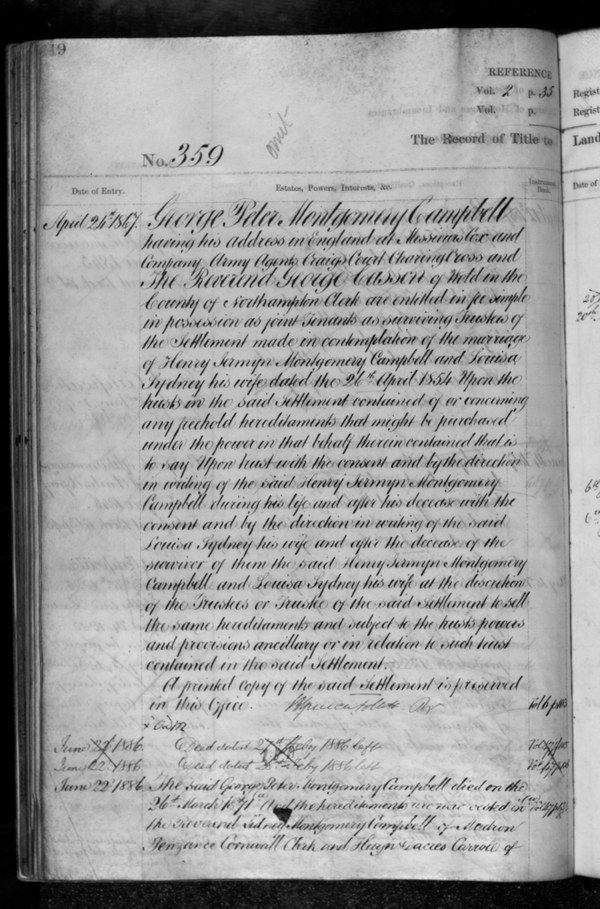 19
REFERENCE
Vol. 2 p. 35
Vol. p.
omit
The Record of Title to
No. 359
Date of Entry.
Estates, Powers, Interests, &c.
Instrument Deed.
April 24th 1867.
George Peter Montgomery Campbell
having his address in England at Messieurs Cox and
Company Army Agents Craigs Court Charing Cross and
The Reverend George Casson of Wold in the
County of Northampton Clerk are entitled in fee simple
in possession as joint Tenants as surviving Trustees of
the Settlement made in contemplation of the marriage
of Henry Jermyn Montgomery Campbell and Louisa
Sydney his wife dated the 26th April 1854 Upon the
trusts in the said Settlement contained of or concerning
any freehold hereditaments that might be purchased
under the power in that behalf therein contained that is
to say Upon trust with the consent and by the direction
in writing of the said Henry Jermyn Montgomery
Campbell during his life and after his decease with the
consent and by the direction in writing of the said
Louisa Sydney his wife and after the decease of the
survivor of them the said Henry Jermyn Montgomery
Campbell and Louisa Sydney his wife at the discretion
of the Trustees or Trustee of the said Settlement to sell
the same hereditaments and subject to the trusts powers
and provisions ancillary or in relation to such trust
contained in the said Settlement.
A printed copy of the said Settlement is preserved
in this Office.
June 22d 1886
Deed dated 27th Feby 1886 left
June 22 1886
Deed dated Feby 1886 left
June 22d 1886
The said George Peter Montgomery Campbell died on the
26th March 1871 And the hereditaments are now vested in
the Reverend Sidney Montgomery Campbell of Madron
Penzance Cornwall Clerk and Lacies Carrole of
Regist
Regist
Land
Date of